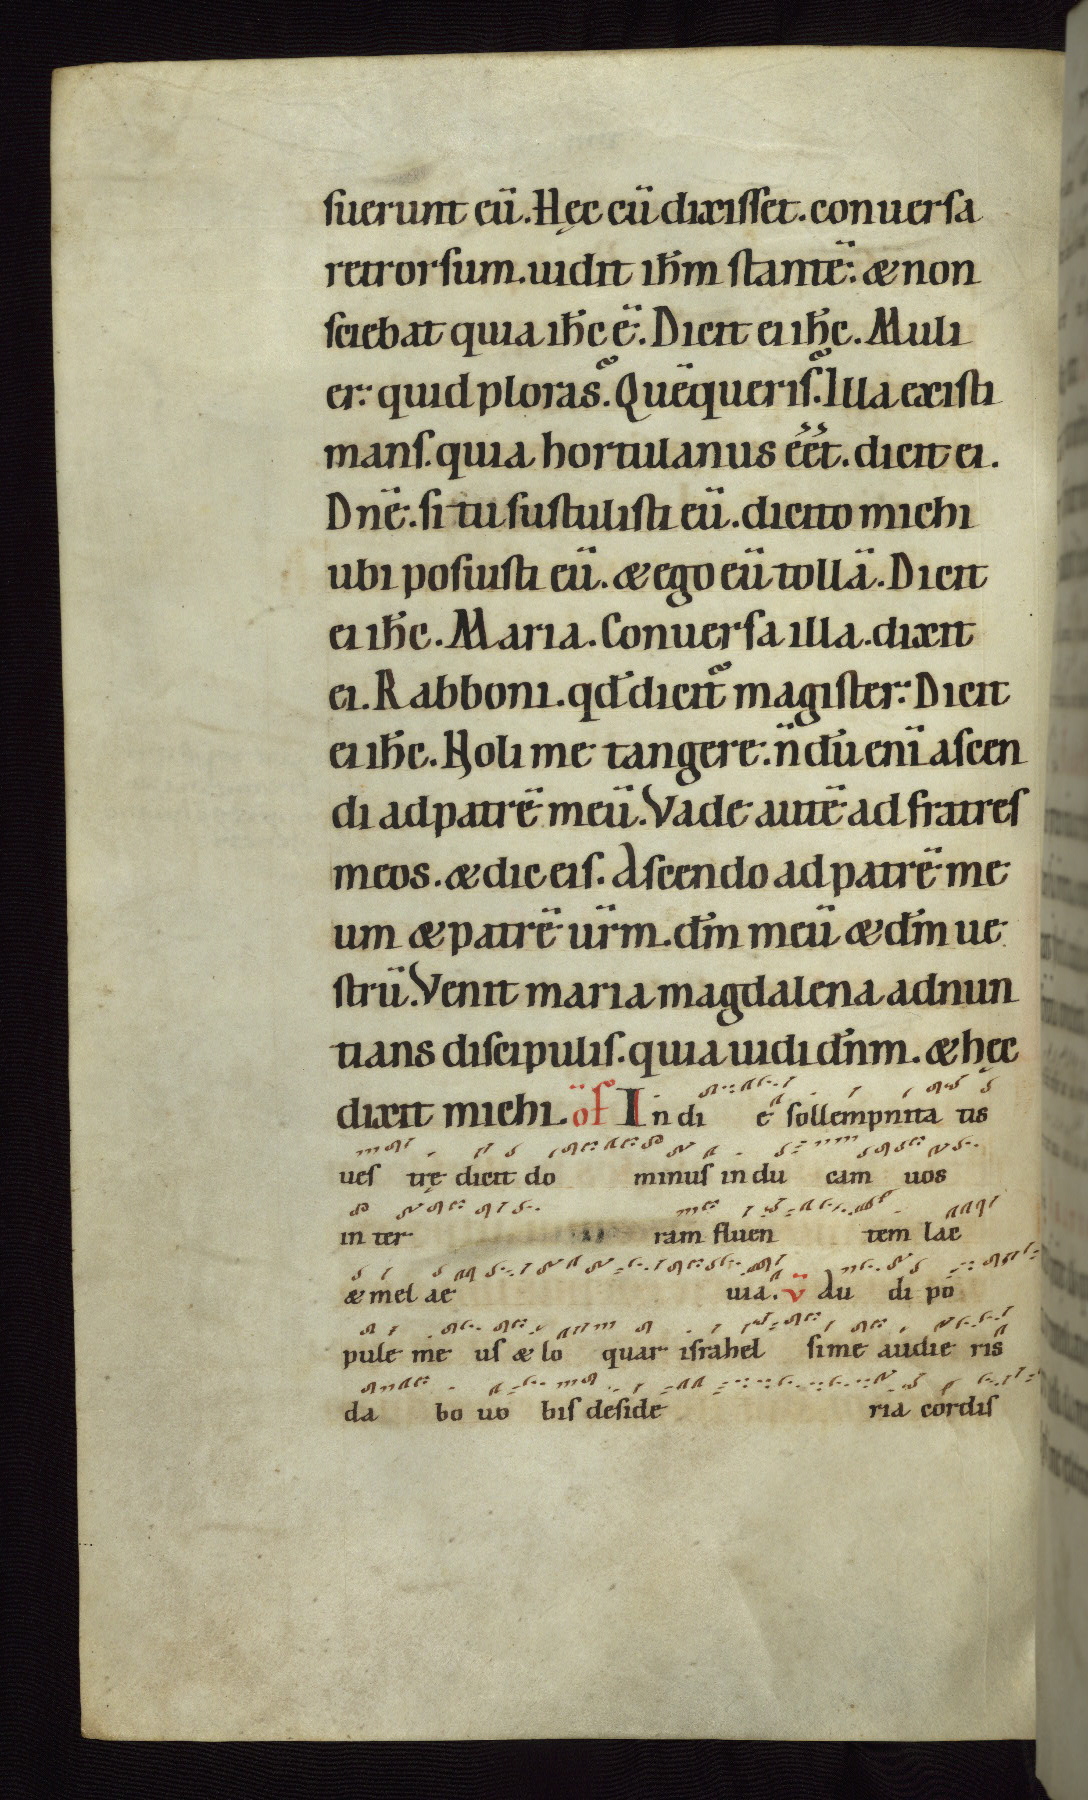 suerunt eū. Hęc cū dixisset. conuersa
retrorsum. uidit ih̄m stantē: & non
sciebat quia ih̄c ē. Dicit ei ih̄c. Muli
er: quid ploras? Quē queris? Illa existi
mans. quia hortulanus eēt. dicit ei.
Dn̄e. si tu sustulisti eū. dicito michi
ubi posuisti eū. & ego eū tollā. Dicit
ei ih̄c. Maria. Conuersa illa. dixit
ei. Rabboni. qd̄ dicit᷑ magister. Dicit
ei ih̄c. Noli me tangere. n̄dū enī ascen
di ad patrē meū. Vade autē ad fratres
meos. & dic eis. Ascendo ad patrē me
um & patrē ur̄m. dm̄ meū & dm̄ ue
strū. Venit maria magdalena adnun
tians discipulis. quia uidi dn̄m. & hęc
dixit michi. of̄ In di e sollempnita tis
ues trę dicit do minus in du cam uos
in ter ram fluen tem lac
& mel ae uia. v̄ Au di po
pule me us & lo quar israhel si me audie ris
da bo uo bis deside ria cordis